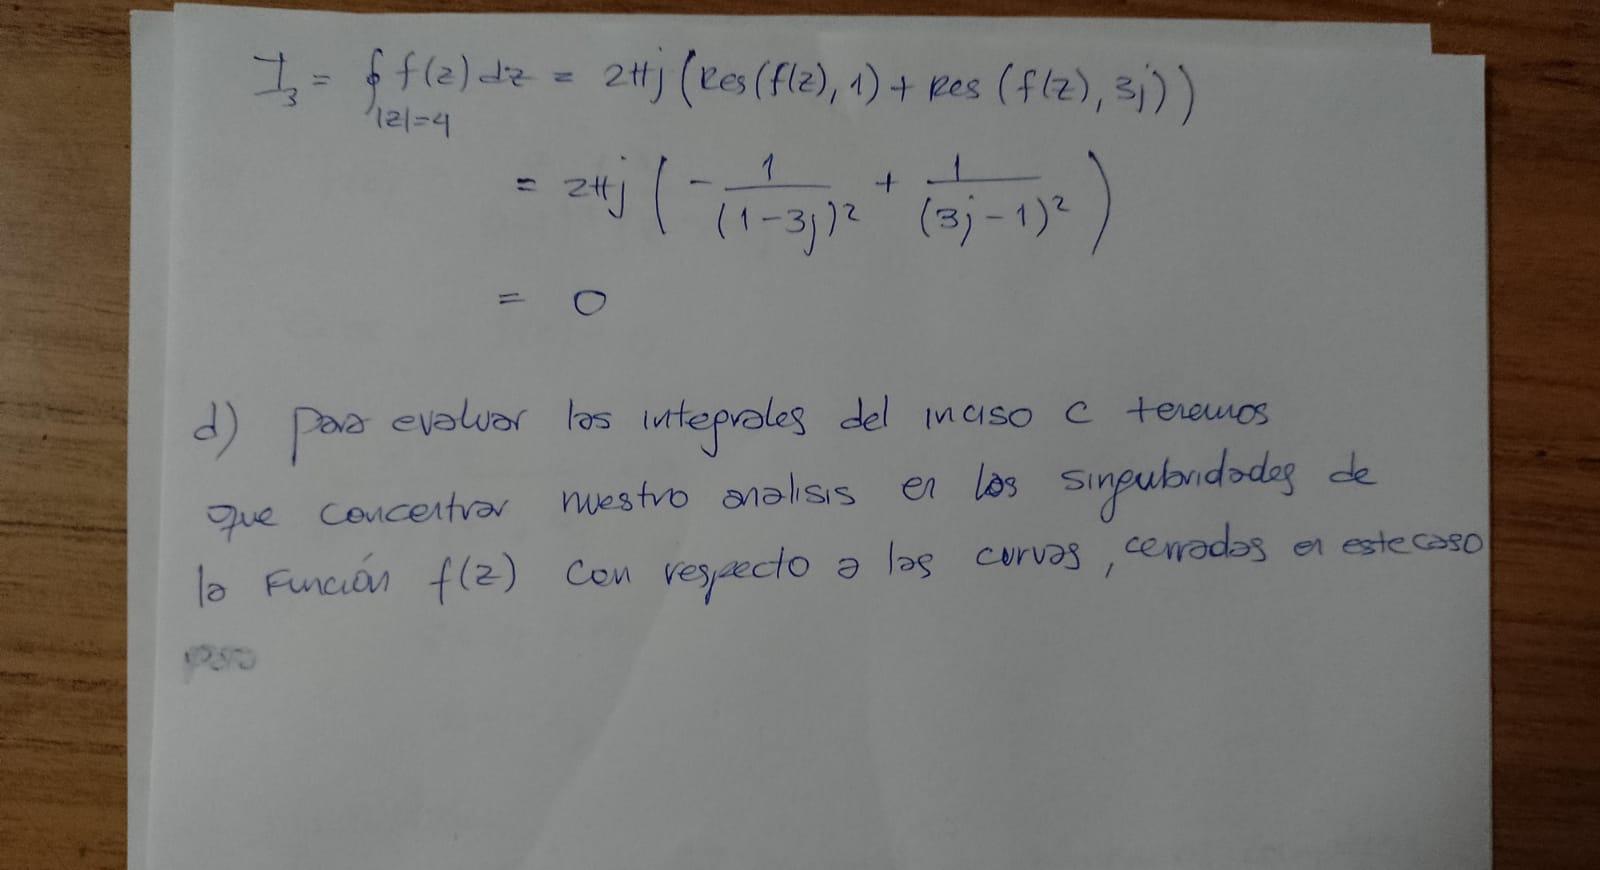 I₃ = ∮ f(z) dz = 2πj (Res(f(z), 1) + Res (f(z), 3j))
|z|=4
= 2πj ( - 1/(1-3j)² + 1/(3j-1)² )
= 0
d) para evaluar las integrales del inciso c tenemos
que concentrar nuestro analisis en las singularidades de
la Función f(z) con respecto a las curvas, cerradas en este caso
para